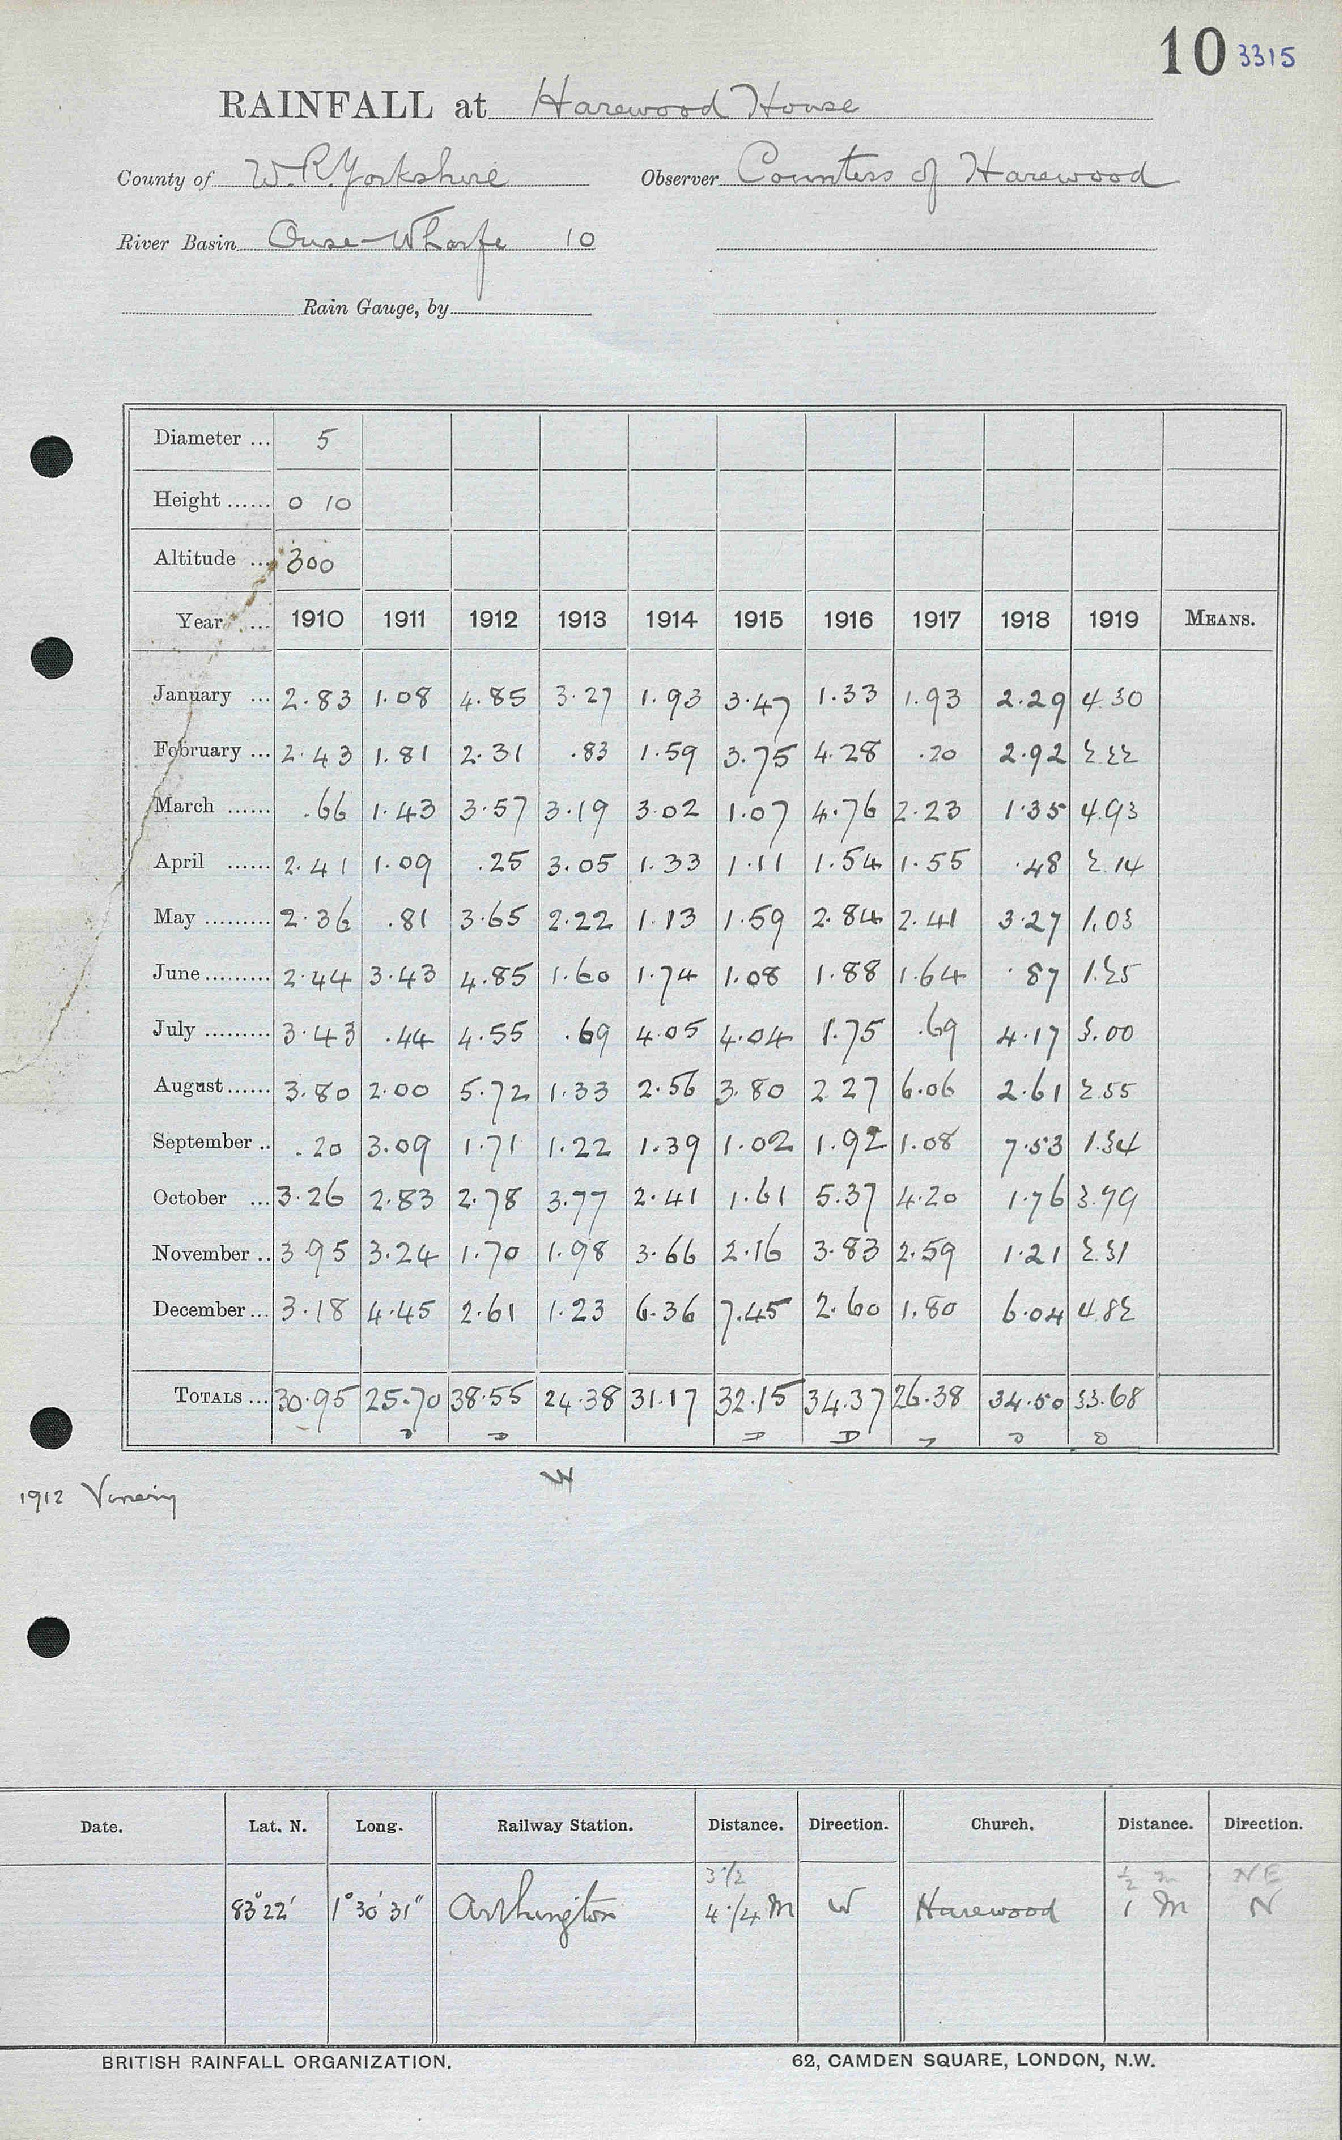 10 3315
RAINFALL at Harewood House
County of W.R. Yorkshire Observer Countess of Harewood
River Basin Ouse-Wharfe 10
Rain Gauge, by
Diameter ... 5
Height ...... 0 10
Altitude ... 300
Year ... 1910 1911 1912 1913 1914 1915 1916 1917 1918 1919 MEANS.
January ... 2.83 1.08 4.85 3.27 1.93 3.47 1.33 1.93 2.29 4.30
February ... 2.43 1.81 2.31 .83 1.59 3.75 4.28 .20 2.92 2.22
March ...... .66 1.43 3.57 3.19 3.02 1.07 4.76 2.23 1.35 4.93
April ...... 2.41 1.09 .25 3.05 1.33 1.11 1.54 1.55 .48 2.14
May ......... 2.36 .81 3.65 2.22 1.13 1.59 2.84 2.41 3.27 1.03
June ......... 2.44 3.43 4.85 1.60 1.74 1.08 1.88 1.64 .87 1.25
July ......... 3.43 .44 4.55 .69 4.05 4.04 1.75 .69 4.17 3.00
August ...... 3.80 2.00 5.72 1.33 2.56 3.80 2.27 6.06 2.61 2.55
September .. .20 3.09 1.71 1.22 1.39 1.02 1.92 1.08 7.53 1.34
October ... 3.26 2.83 2.78 3.77 2.41 1.61 5.37 4.20 1.76 3.79
November .. 3.95 3.24 1.70 1.98 3.66 2.16 3.83 2.59 1.21 2.31
December ... 3.18 4.45 2.61 1.23 6.36 7.45 2.60 1.80 6.04 4.82
TOTALS ... 30.95 25.70 38.55 24.38 31.17 32.15 34.37 26.38 34.50 33.68
1912
Date. Lat. N. Long. Railway Station. Distance. Direction. Church. Distance. Direction.
3 1/2 1/2 m NE
83°22' 1°30'31" Arthington 4 1/4 M W Harewood 1 M N
BRITISH RAINFALL ORGANIZATION. 62, CAMDEN SQUARE, LONDON, N.W.